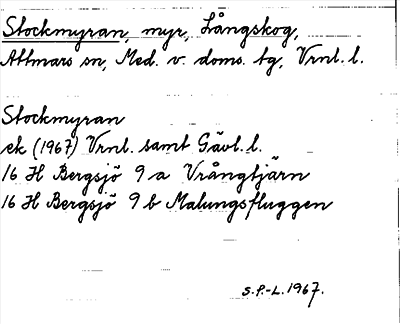 Stockmyran, myr, Långskog,
Attmars sn, Med. v. doms. tg, Vrnl. l.
Stockmyran
ek (1967) Vrnl. samt Gävl. l.
16 H Bergsjö 9 a Vrångtjärn
16 H Bergsjö 9 b Malungsfluggen
S.P.-L. 1967.